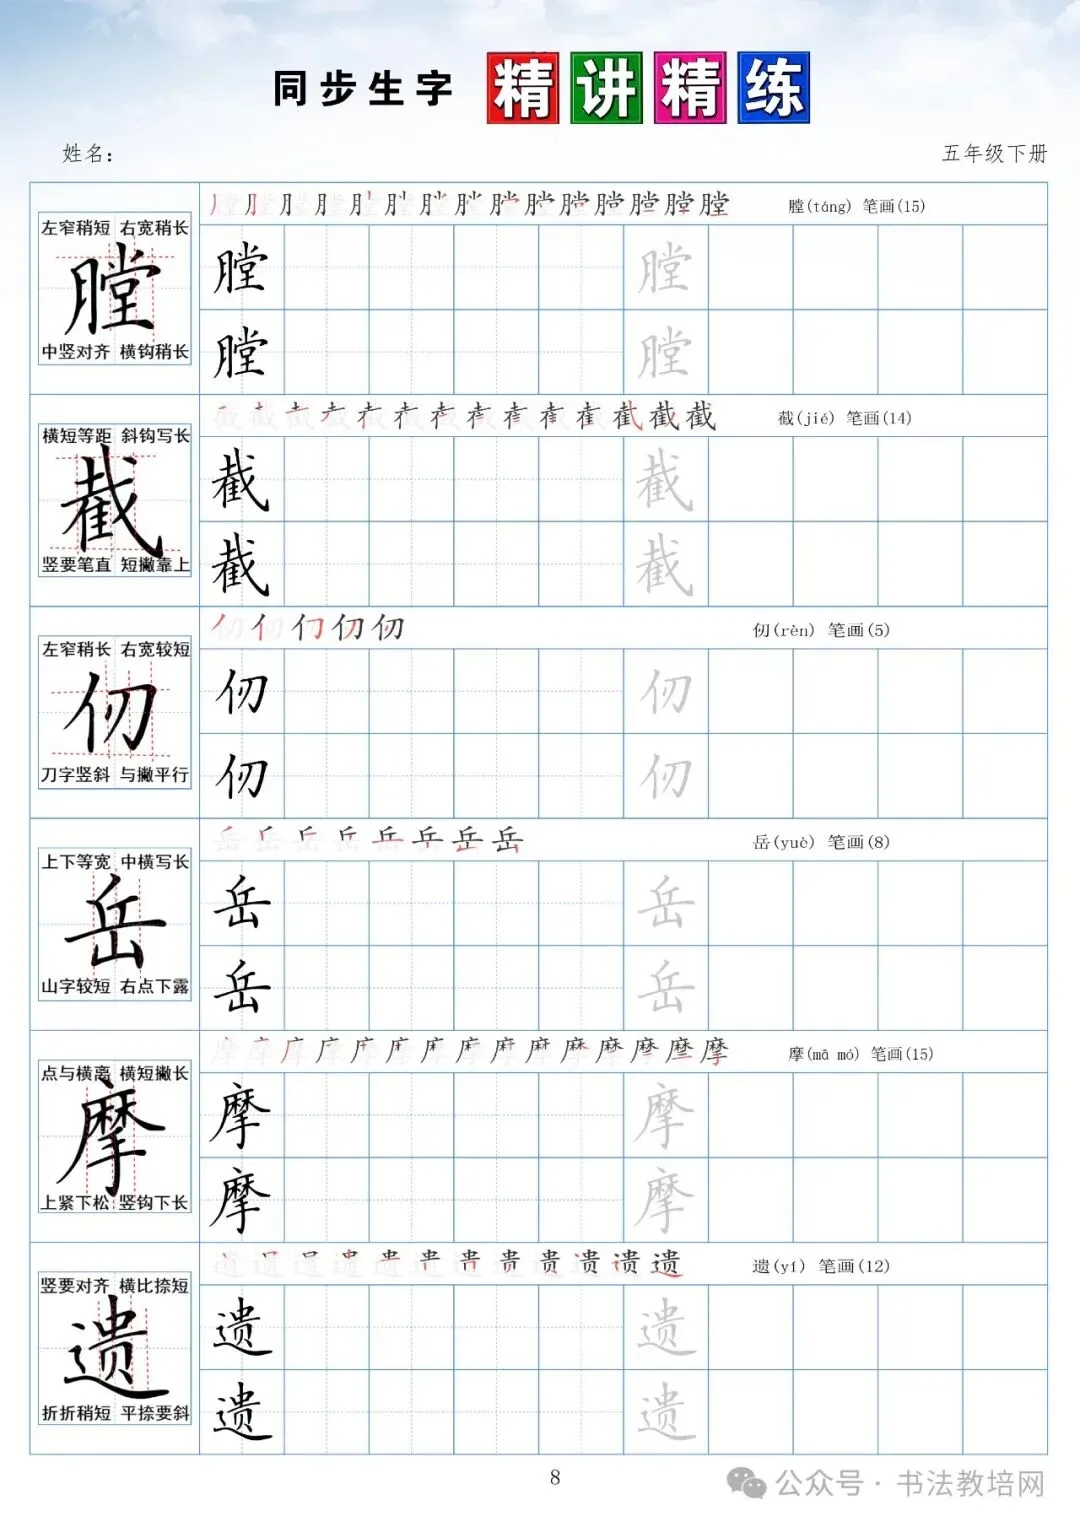 同步生字 精讲精练
姓名：
五年级下册
左窄稍短 右宽稍长
膛
中竖对齐 横钩稍长
膛(táng) 笔画(15)
膛 膛
膛 膛
横短等距 斜钩写长
截
竖要笔直 短撇靠上
截(jié) 笔画(14)
截 截
截 截
左窄稍长 右宽较短
仞
刀字竖斜 与撇平行
仞(rèn) 笔画(5)
仞 仞
仞 仞
上下等宽 中横写长
岳
山字较短 右点下露
岳(yuè) 笔画(8)
岳 岳
岳 岳
点与横离 横短撇长
摩
上紧下松 竖钩下长
摩(mā mó) 笔画(15)
摩 摩
摩 摩
竖要对齐 横比捺短
遗
折折稍短 平捺要斜
遗(yí) 笔画(12)
遗 遗
遗 遗
8
公众号 · 书法教培网